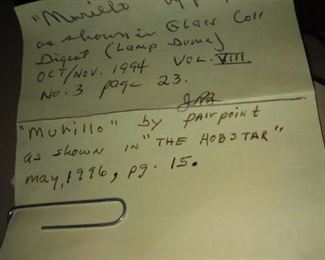 "Murillo" by
as shown in Glass Coll
Digest (Lamp Dome)
OCT/NOV. 1994 VOL. VIII
No. 3 page 23.
"Murillo" by pairpoint
as shown in "THE HOBSTAR",
may, 1996, pg. 15.